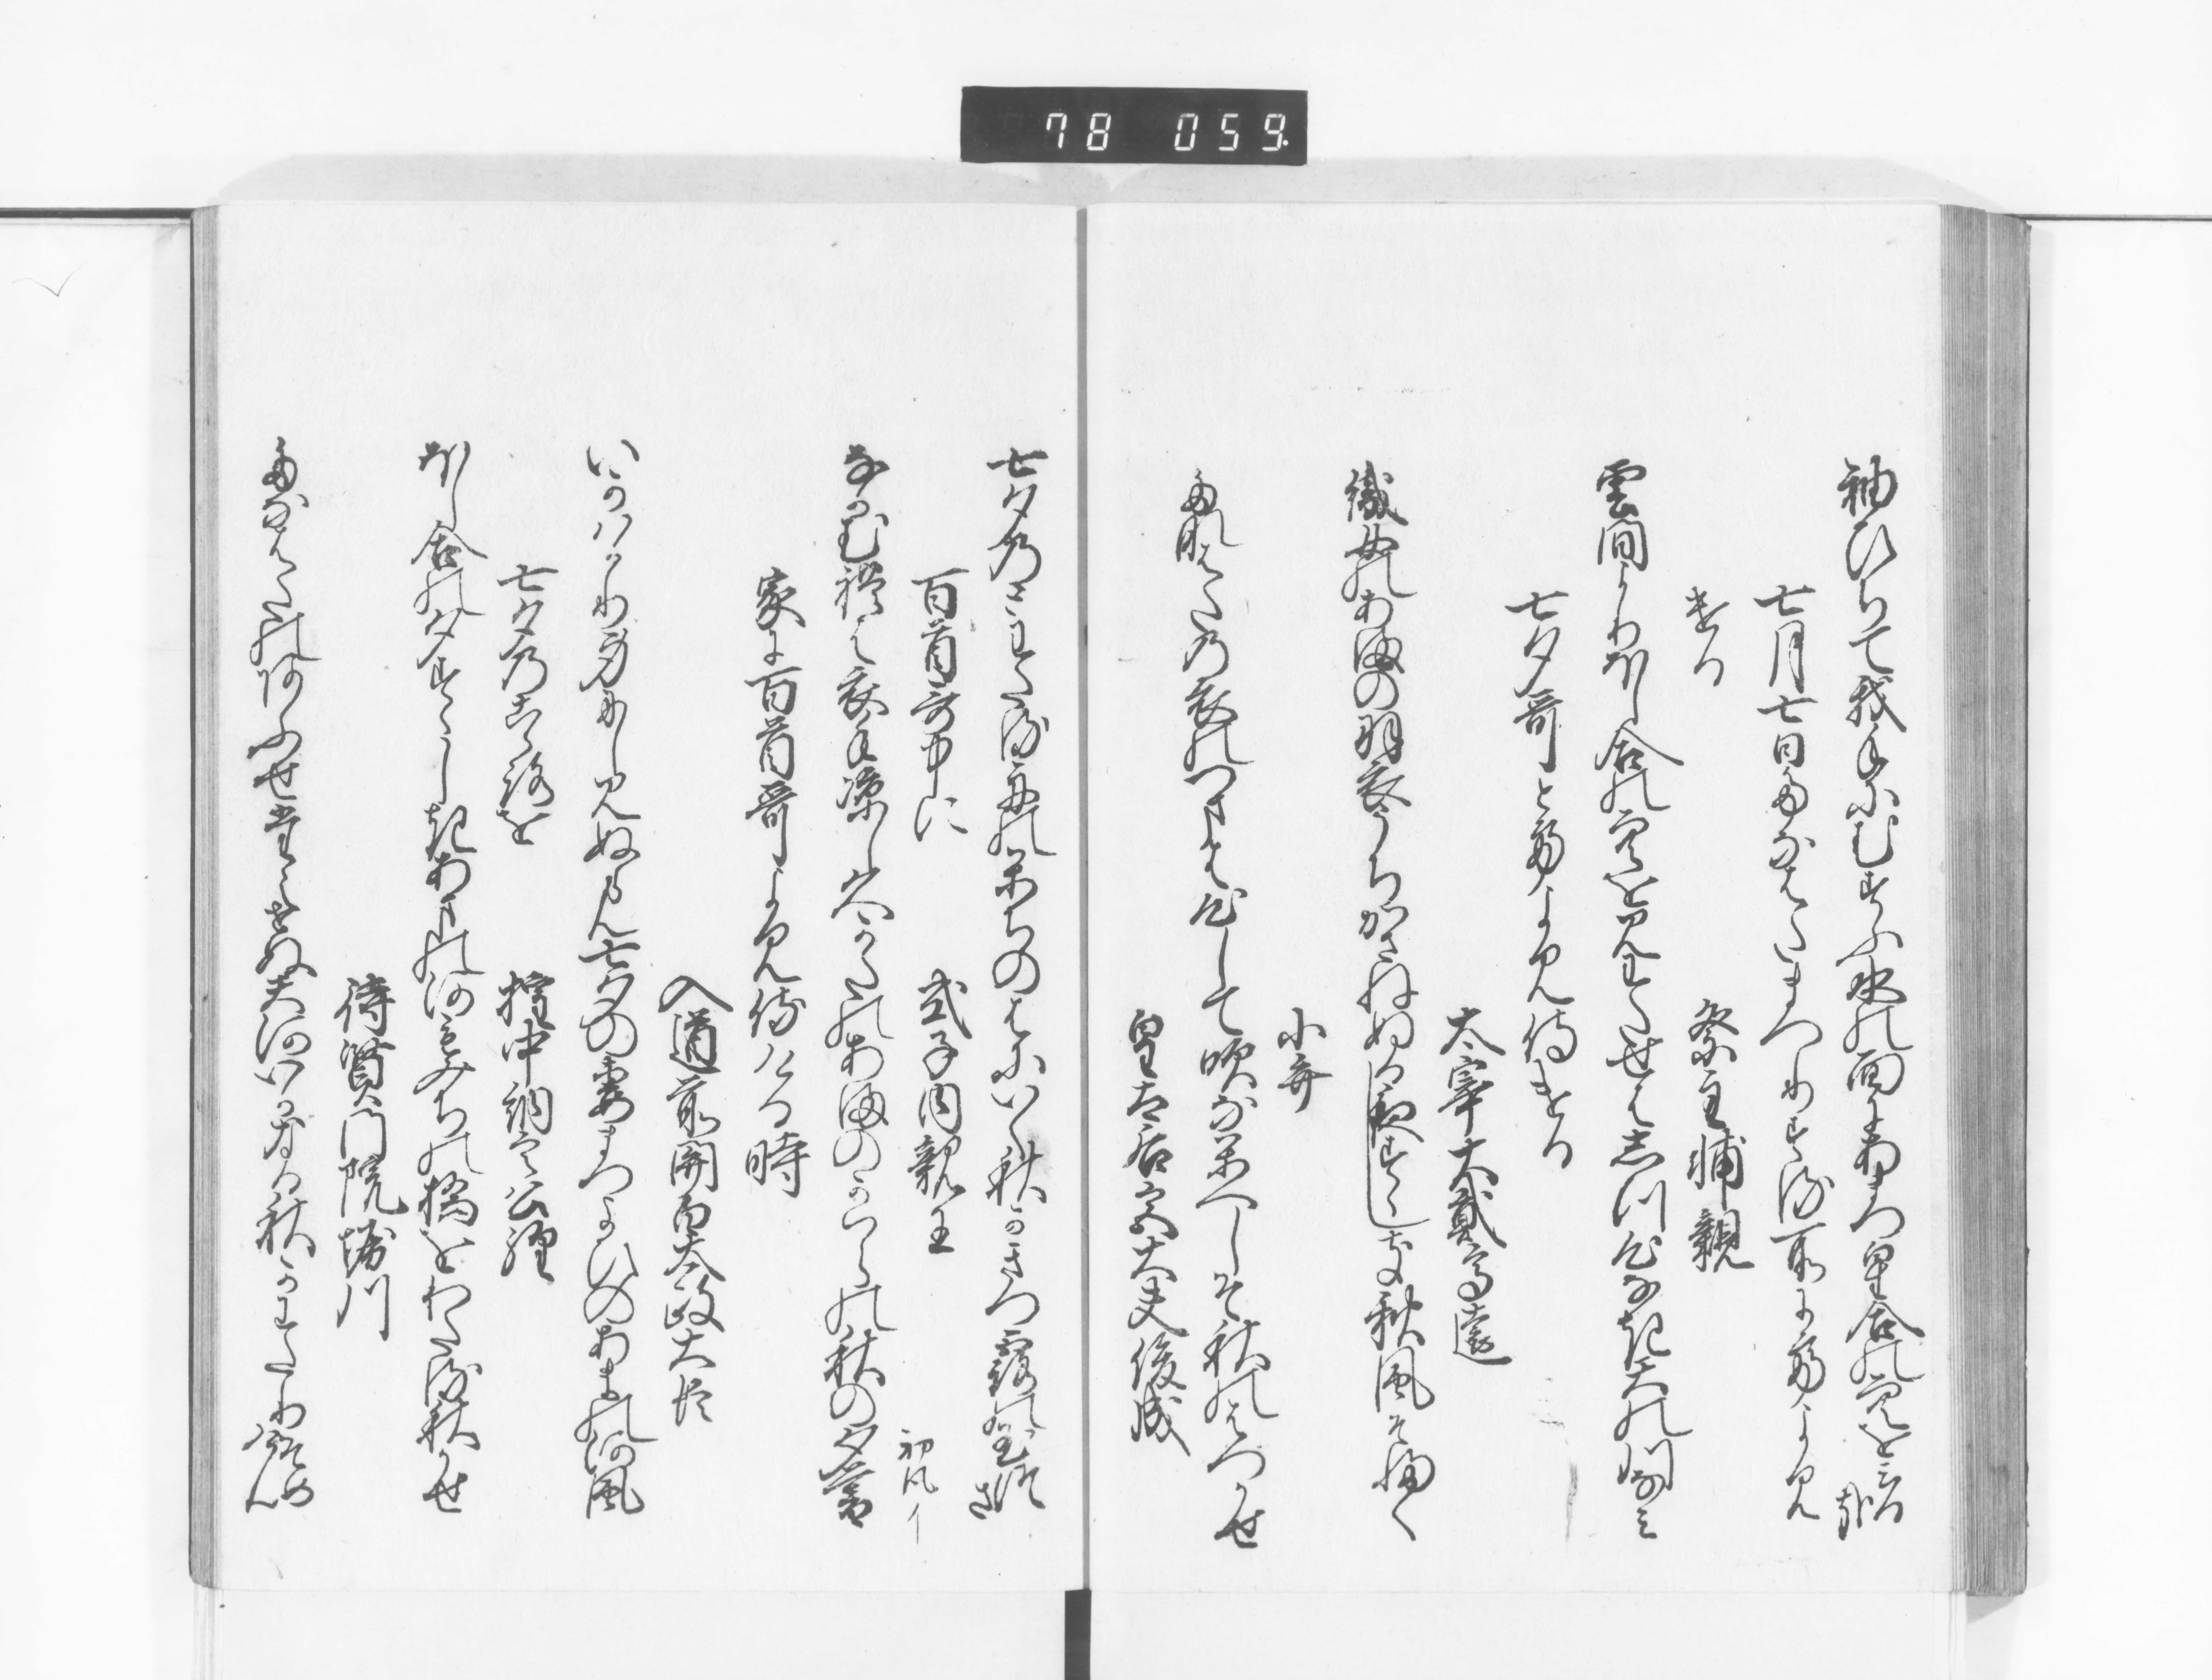 78 059
袖ひちて我手にむすふ水の面にあまつ星合の空を見る哉
七月七日たなはたまつりする所にてよみ
ける
祭主輔親
雲間よりほし合の空を見わたせはしつ心なき天の川なみ
七夕哥とてよみ侍ける
太宰大貳高遠
織女のあまの羽衣うちかさねぬる夜すゝしき秋風そ吹く
小弁
たなはたの衣のつまは心して吹なかへしそ秋のはつかせ
皇太后宮大夫俊成
七夕のとわたる舟のかちのはにいく秋かきつ露の玉つさ
百首哥中に
式子内親王
初风イ
なかむれは衣手涼し久かたのあまのかはらの秋の夕暮
家に百首哥よみ侍ける時
入道前関白太政大臣
いかはかり身にしみぬらん七夕の妻まつよひのあまの河風
七夕のこゝろを
権中納言公経
ほし合の夕すゝしきあまの河もみちの橋をわたる秋かせ
待賢門院堀川
たなはたのあふせたえせぬ天河いかなる秋かわたりそめけん